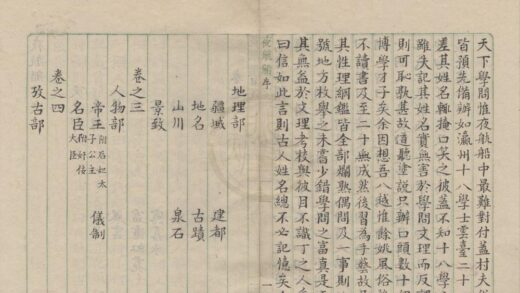 天下學問惟夜航船中最難對付蓋村夫
皆預先備辦如瀛州十八學士雲臺二十
差其姓名輒掩口笑之彼蓋不知十八學
雖失記其姓名實無害於學問文理而反
則可恥孰甚故道聽塗說只辦口頭數十
博學才子矣余因想吾八越惟餘姚風俗
不讀書及至二十無成然後習為手藝故
其性理綱鑑皆全部爛熟偶問及一事則
號地方枚舉之未嘗少錯學問之富真是
其無益於文理考校與彼目不識丁之人
曰信如此言則古人姓名總不必記憶矣
夜航船 序 一
地理部
疆域 建都
地名 古蹟
山川 泉石
景致
卷之三
人物部
帝王 附后妃太子公主 儀制
名臣 附奸佞大臣
卷之四
攷古部